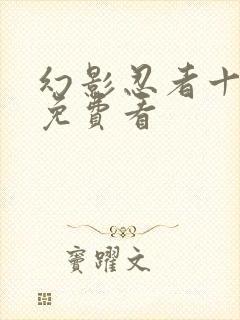 幻影忍者十
免費看
竇躍文